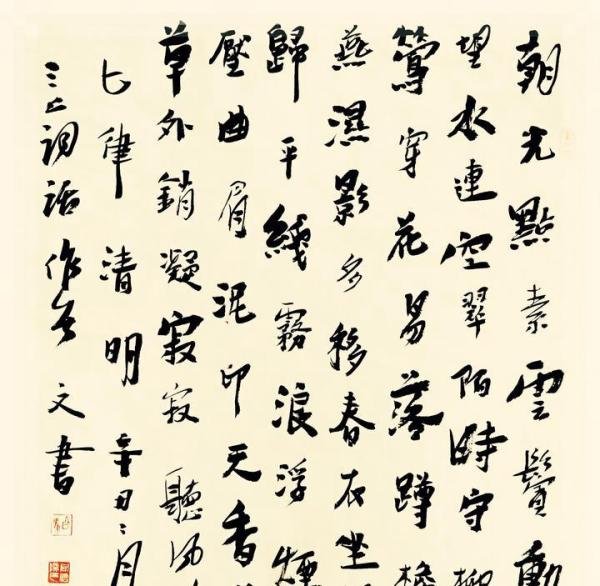 朝光點素雲鬢動
望水連空翠陌時守柳
鶯穿花易落蹲檐
燕濕影多移春衣坐
歸平綫霧浪浮煙
壓曲眉泥印天香
草外銷凝寂寂聽
七律清明辛丑二月
三上詞話作 文書